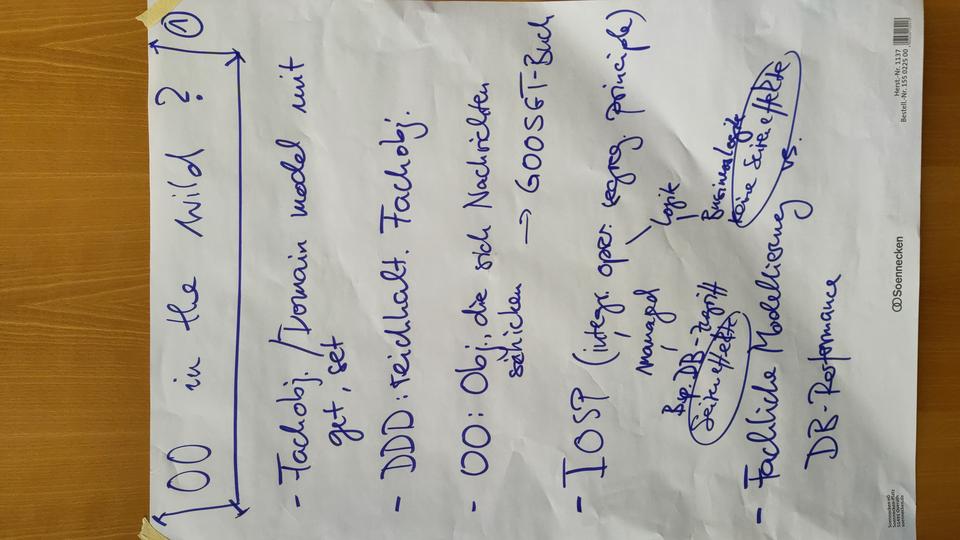 OO in the wild ? ①
- Fachobj. / Domain model mit
get, set
- DDD: reichhalt. Fachobj.
- OO: Obj., die sich Nachrichten
schicken → GOOSGT-Buch
- IOSP (integr. oper. segreg. principle)
managed Logik
Bsp. DB-Zugriff Businesslogik
Seiteneffekte keine Seiteneffekte
- Fachliche Modellierung vs.
DB-Performance
Soennecken
Herst.-Nr. 1137
Bestell.-Nr. 155 0225 00
Soennecken eG
Soennecken-Platz
51491 Overath
soennecken.de